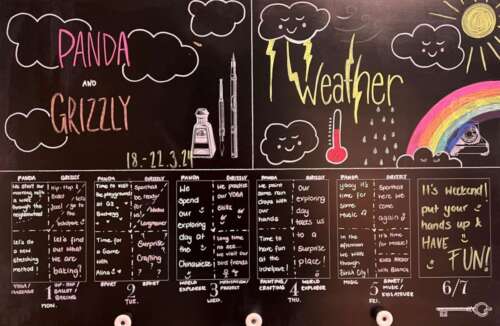 PANDA
AND
GRIZZLY
18.-22.3.24
Weather
PANDA
GRIZZLY
We start our
morning with
a walk
through the
neighborhood
Hip-Hop &
Ballet
let's
go to the
Let's do
a new
stretching
method!
Let's find
out what
we are
baking!
YOGA/
HIP-HOP/
BALLET/
BAKING
1
MON.
PANDA
GRIZZLY
Time to hit
the playground
at
Time for
a Game
with
Alina
Sportsday
be ready
Surprise
Crafting
?
SPORT
2
TUE.
PANDA
GRIZZLY
We
spend
our
exploring
day at
the
Chinawiese
We practice
our YOGA
Long time
no see
we visit
our bird
friends
WORLD
EXPLORER
3
WED.
PANDA
GRIZZLY
We paint
some rain
drops with
our hands
Time to
have fun
at the
Our
exploring
day
takes us
to a
Surprise
place!
PAINTING/
CRAFTING
WORLD
EXPLORER
4
THU.
PANDA
GRIZZLY
yaayy it's
time for
some
Music
In the
afternoon
we walk
through
Sportsday
here we
come
again
It's time
for music!
MUSIC
SPORT/
MUSIC/
5
FRI.
It's weekend!
put your
hands up &
HAVE
FUN!
6/7